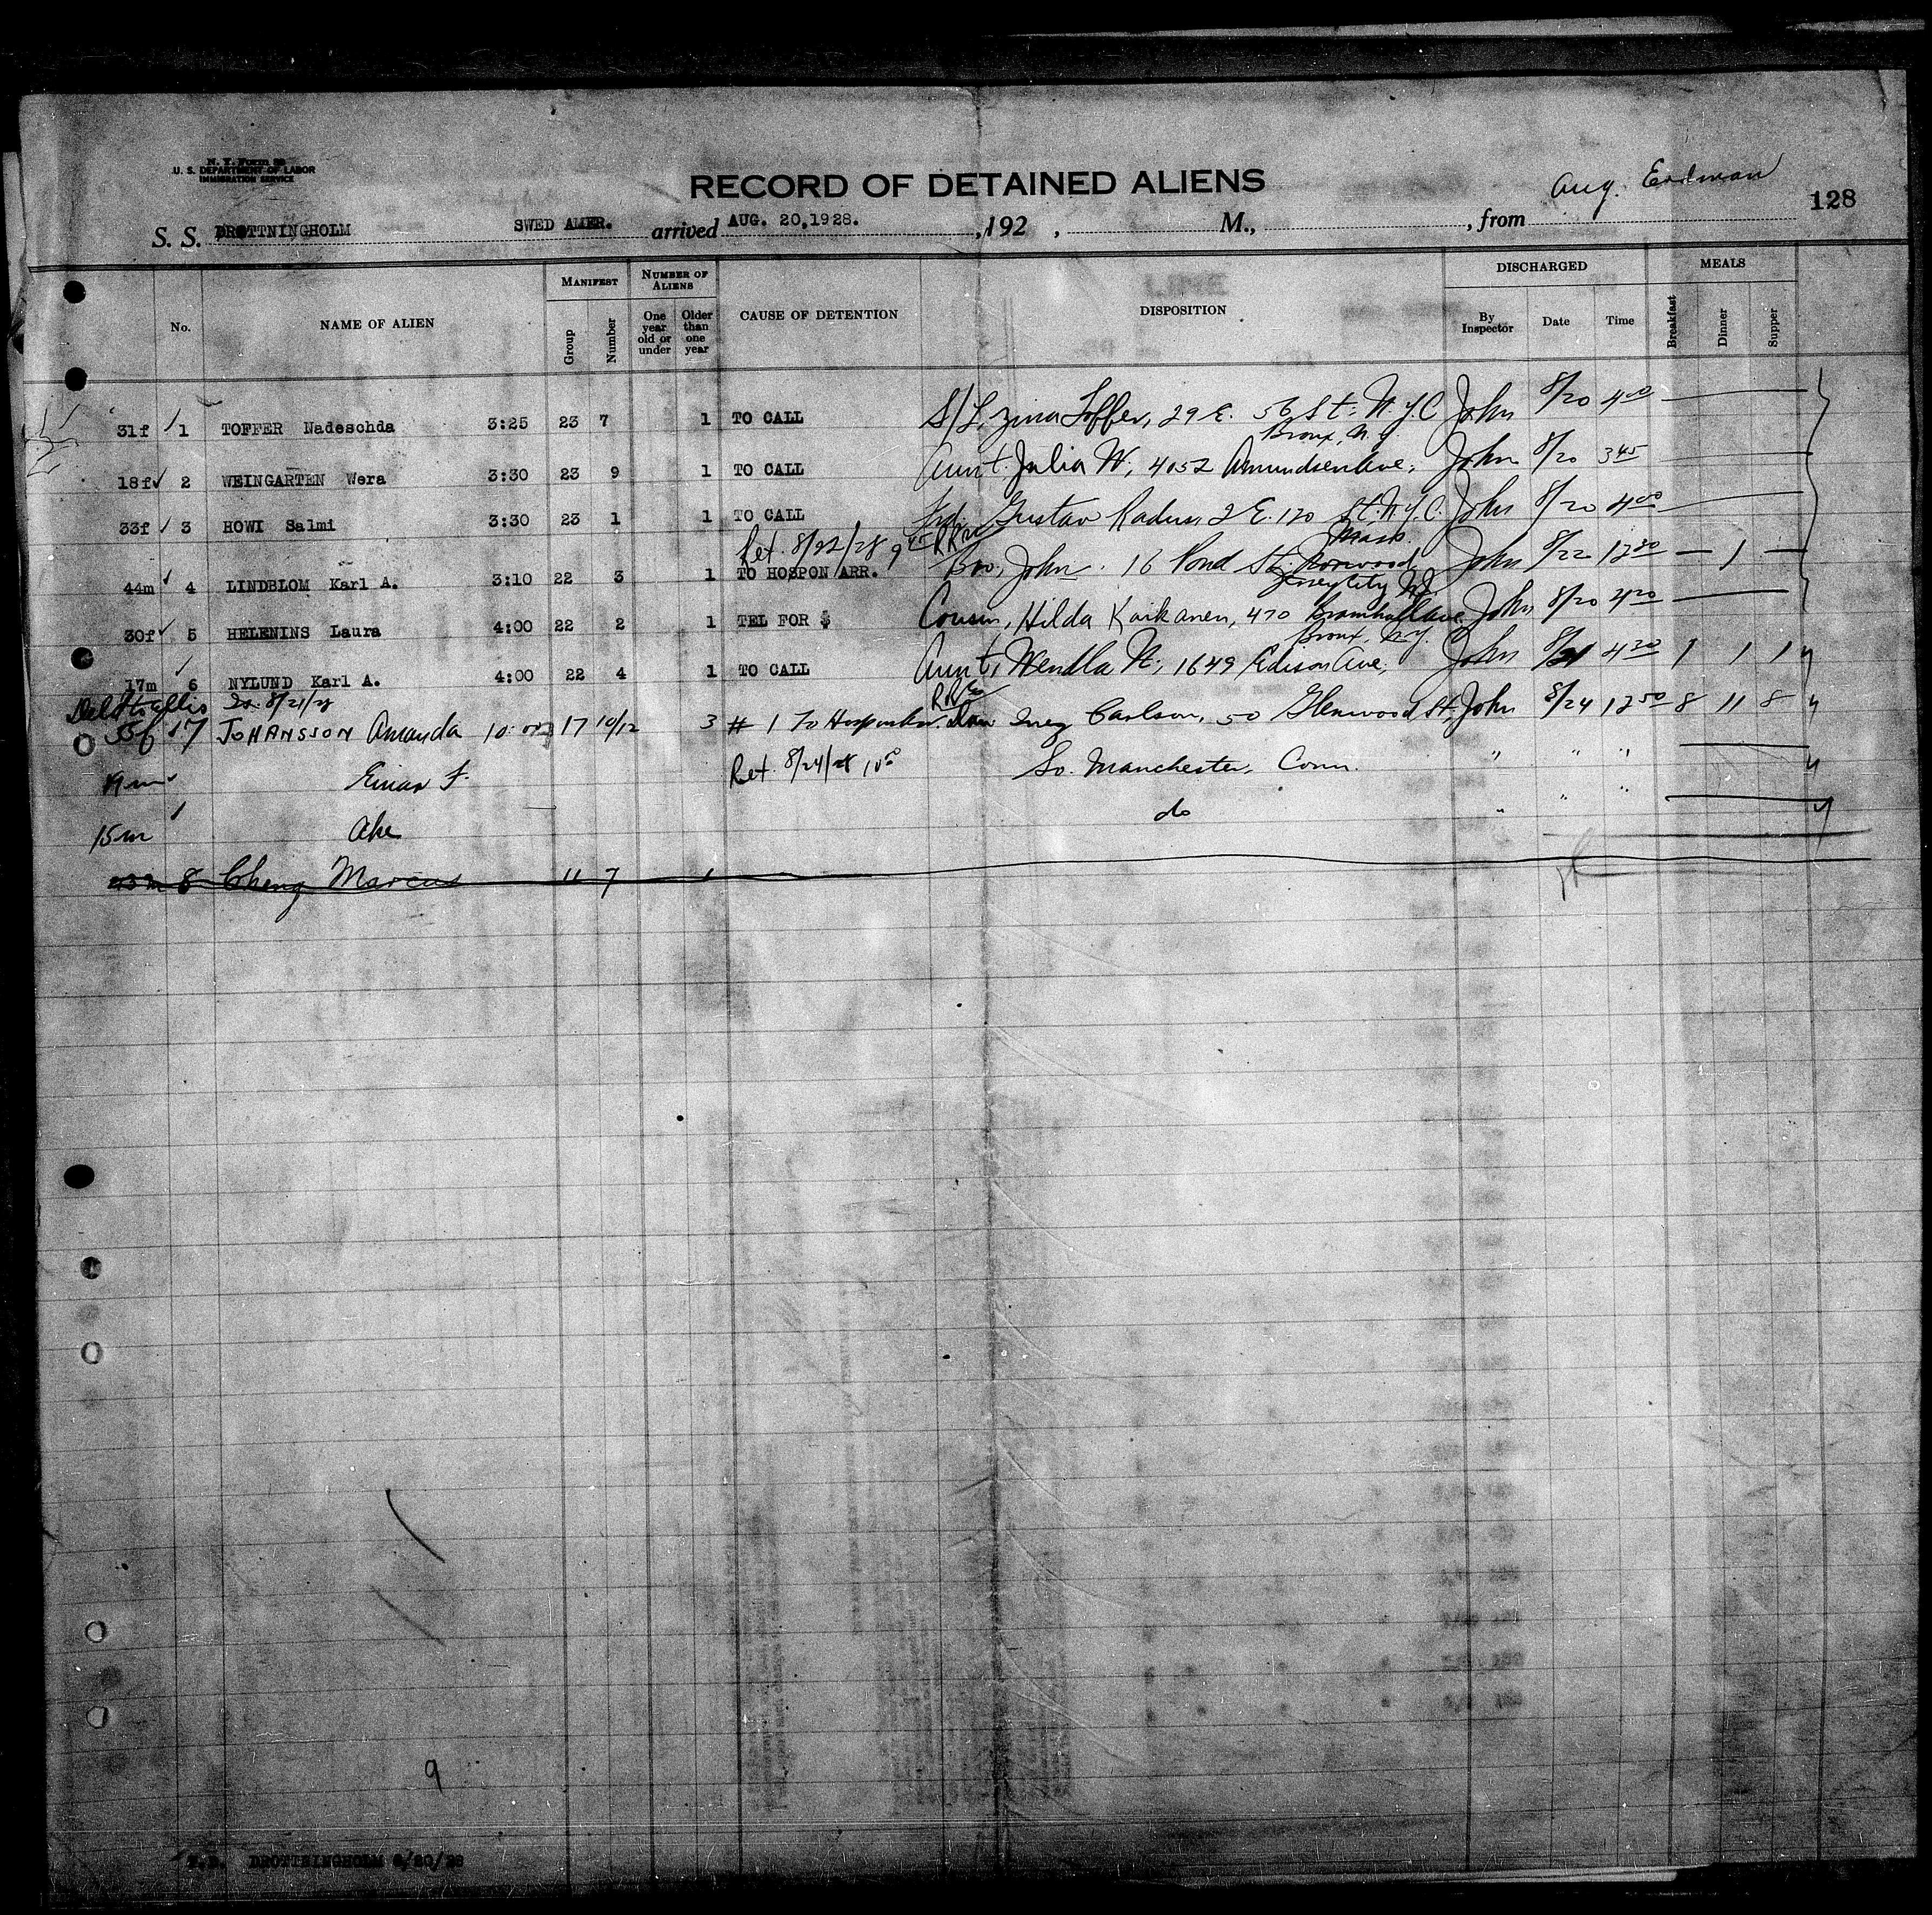 N. Y. Form 
U. S. DEPARTMENT OF LABOR
IMMIGRATION SERVICE
RECORD OF DETAINED ALIENS
Aug. Erdman
128
S. S. DROTTNINGHOLM SWED AMER. arrived AUG. 20,1928. ,192 , M., , from
No. NAME OF ALIEN MANIFEST Group Number NUMBER OF ALIENS One year old or under Older than one year CAUSE OF DETENTION DISPOSITION DISCHARGED By Inspector Date Time MEALS Breakfast Dinner Supper
31f 1 TOFFER Nadeschda 3:25 23 7 1 TO CALL S/L, Zina Toffer, 29 E. 56 St. N.Y.C John 8/20 4 00
Bronx, N.Y.
18f 2 WEINGARTEN Wera 3:30 23 9 1 TO CALL Aunt, Julia W, 4052 Amundsen Ave, John 8/20 3 45
33f 3 HOWI Salmi 3:30 23 1 1 TO CALL Frd, Gustav Radus, 2 E. 120 St. N.Y.C. John 8/20 4 00
Ret. 8/22/28 Mass.
44m 4 LINDBLOM Karl A. 3:10 22 3 1 TO HOSPON ARR. Bro, John 16 Pond St, Norwood John 8/22 12 30 — 1 —
Jersey City N.J.
30f 5 HELENINS Laura 4:00 22 2 1 TEL FOR $ Cousin, Hilda Kaikanen, 470 Bramhall Ave John 8/20 4 20
Bronx, N.Y.
17m 6 NYLUND Karl A. 4:00 22 4 1 TO CALL Aunt, Wendla N., 1649 Edison Ave, John 8/21 4 20 1 1 1
8/21/28
35f 7 JOHANSSON Amanda 17 10/12 3 # 1 To Hosp Inez Carlson, 50 Glenwood St, John 8/24 12 50 8 11 8
Einar F. Ret. 8/24/28 So. Manchester, Conn. " " "
15m Ake do " " "
8 Cheng Marcus 11 7 1
9
DROTTNINGHOLM 8/20/28